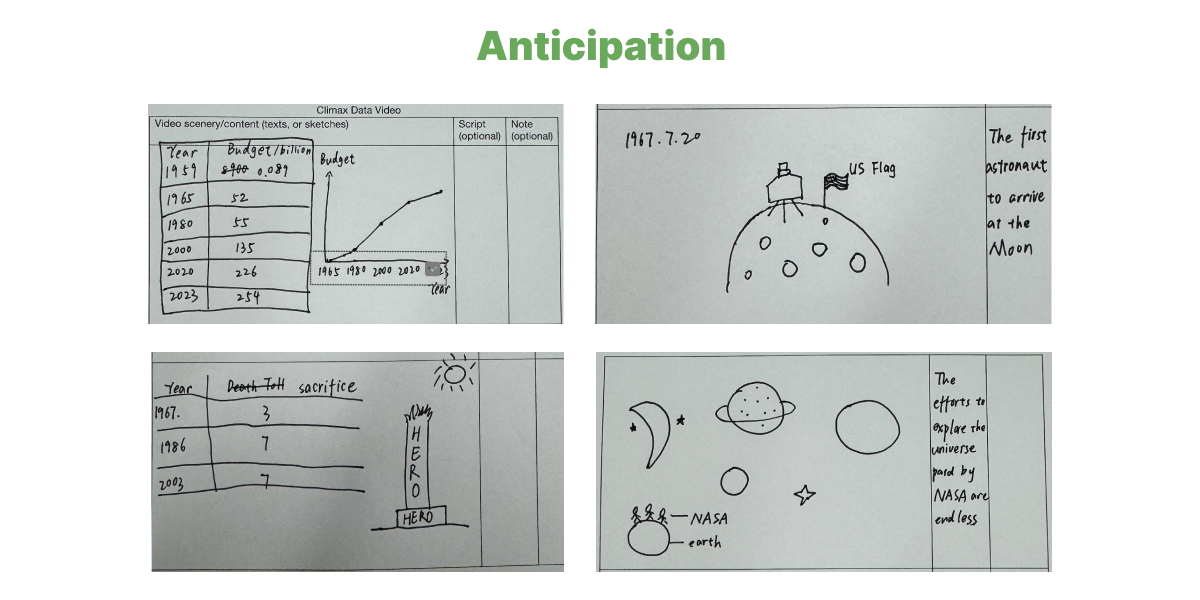 Anticipation
Climax Data Video
Video scenery/content (texts, or sketches)
Script (optional)
Note (optional)
Year Budget/billion
1959 8900 0.089
1965 52
1980 55
2000 135
2020 226
2023 254
Budget
1965 1980 2000 2020
Year
1967.7.20
US Flag
The first
astronaut
to arrive
at the
Moon
Year Death Toll sacrifice
1967. 3
1986 7
2003 7
HERO
HERO
NASA
earth
The
efforts to
explore the
universe
paid by
NASA are
endless